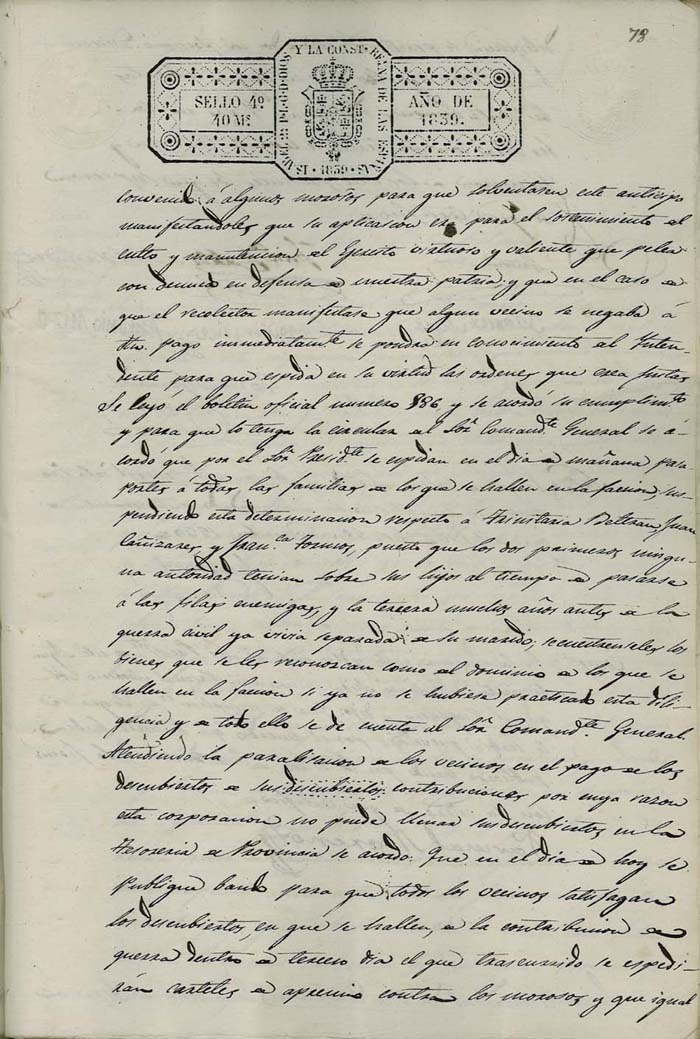 78
ISABEL 2ª P. L. G. D. DIOS Y LA CONST. REYNA DE LAS ESPAÑAS
SELLO 4º
40 Ms
AÑO DE
1839.
1839
convenido á algunos morosos para que solventasen este anticipo
manifestandoles que su aplicacion era para el sostenimiento del
culto y manutencion del Ejercito virtuoso y valiente que pelea
con denuedo en defensa de nuestra patria; y que en el caso de
que el recolector manifestase que algun vecino se negaba á
su pago immediatamte se pondra en conocimiento del Inten-
dente para que espida en su virtud las ordenes que crea justas
Se leyó el boletin oficial numero 886 y se acordó su cumplimto
y para que lo tenga la circular del Sor Comandte General se a-
cordó que por el Sor Presidte se espidan en el dia de mañana pasa-
portes á todas las familias de los que se hallen en la facion, sus-
pendiendo esta determinacion respecto á Trinitaria Beltran, Juan
Cañizares, y Franca Formos, puesto que los dos primeros ningu-
na autoridad tenian sobre sus hijos al tiempo de pasarse
á las filas enemigas, y la tercera muchos años antes de la
guerra civil ya vivia separada de su marido; secuestrenseles los
bienes que se les reconozcan como del dominio de los que se
hallen en la facion si ya no se hubiese practicado esta dili-
gencia y de todo ello se de cuenta al Sor Comandte General.
Atendiendo la paralisacion de los vecinos en el pago de los
descubiertos de sus descubiertos contribuciones por cuya razon
esta corporacion no puede llenar sus descubiertos en la
Tesoreria de Provincia se acordo: Que en el dia de hoy se
publique bando para que todos los vecinos satisfagan
los descubiertos, en que se hallen, de la contribucion de
guerra dentro de tercero dia el que trascurrido se espedi-
rán carteles de apremio contra los morosos y que igual